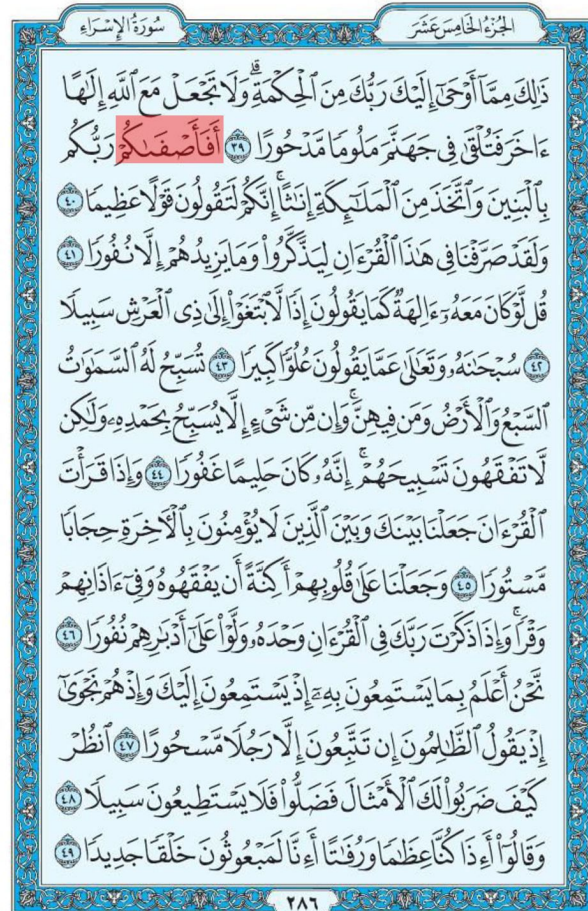 سُورَةُ الإِسْرَاءِ
الجُزْءُ الخَامِسَ عَشَرَ
ذَٰلِكَ مِمَّآ أَوْحَىٰٓ إِلَيْكَ رَبُّكَ مِنَ ٱلْحِكْمَةِ ۗ وَلَا تَجْعَلْ مَعَ ٱللَّهِ إِلَٰهًا
ءَاخَرَ فَتُلْقَىٰ فِى جَهَنَّمَ مَلُومًا مَّدْحُورًا ٣٩ أَفَأَصْفَىٰكُمْ رَبُّكُم
بِٱلْبَنِينَ وَٱتَّخَذَ مِنَ ٱلْمَلَٰٓئِكَةِ إِنَٰثًا ۚ إِنَّكُمْ لَتَقُولُونَ قَوْلًا عَظِيمًا ٤٠
وَلَقَدْ صَرَّفْنَا فِى هَٰذَا ٱلْقُرْءَانِ لِيَذَّكَّرُوا۟ وَمَا يَزِيدُهُمْ إِلَّا نُفُورًا ٤١
قُل لَّوْ كَانَ مَعَهُۥٓ ءَالِهَةٌ كَمَا يَقُولُونَ إِذًا لَّٱبْتَغَوْا۟ إِلَىٰ ذِى ٱلْعَرْشِ سَبِيلًا
٤٢ سُبْحَٰنَهُۥ وَتَعَٰلَىٰ عَمَّا يَقُولُونَ عُلُوًّا كَبِيرًا ٤٣ تُسَبِّحُ لَهُ ٱلسَّمَٰوَٰتُ
ٱلسَّبْعُ وَٱلْأَرْضُ وَمَن فِيهِنَّ ۚ وَإِن مِّن شَىْءٍ إِلَّا يُسَبِّحُ بِحَمْدِهِۦ وَلَٰكِن
لَّا تَفْقَهُونَ تَسْبِيحَهُمْ ۗ إِنَّهُۥ كَانَ حَلِيمًا غَفُورًا ٤٤ وَإِذَا قَرَأْتَ
ٱلْقُرْءَانَ جَعَلْنَا بَيْنَكَ وَبَيْنَ ٱلَّذِينَ لَا يُؤْمِنُونَ بِٱلْأَخِرَةِ حِجَابًا
مَّسْتُورًا ٤٥ وَجَعَلْنَا عَلَىٰ قُلُوبِهِمْ أَكِنَّةً أَن يَفْقَهُوهُ وَفِىٓ ءَاذَانِهِمْ
وَقْرًا ۚ وَإِذَا ذَكَرْتَ رَبَّكَ فِى ٱلْقُرْءَانِ وَحْدَهُۥ وَلَّوْا۟ عَلَىٰٓ أَدْبَٰرِهِمْ نُفُورًا ٤٦
نَّحْنُ أَعْلَمُ بِمَا يَسْتَمِعُونَ بِهِۦٓ إِذْ يَسْتَمِعُونَ إِلَيْكَ وَإِذْ هُمْ نَجْوَىٰٓ
إِذْ يَقُولُ ٱلظَّٰلِمُونَ إِن تَتَّبِعُونَ إِلَّا رَجُلًا مَّسْحُورًا ٤٧ ٱنظُرْ
كَيْفَ ضَرَبُوا۟ لَكَ ٱلْأَمْثَالَ فَضَلُّوا۟ فَلَا يَسْتَطِيعُونَ سَبِيلًا ٤٨
وَقَالُوٓا۟ أَءِذَا كُنَّا عِظَٰمًا وَرُفَٰتًا أَءِنَّا لَمَبْعُوثُونَ خَلْقًا جَدِيدًا ٤٩
٢٨٦